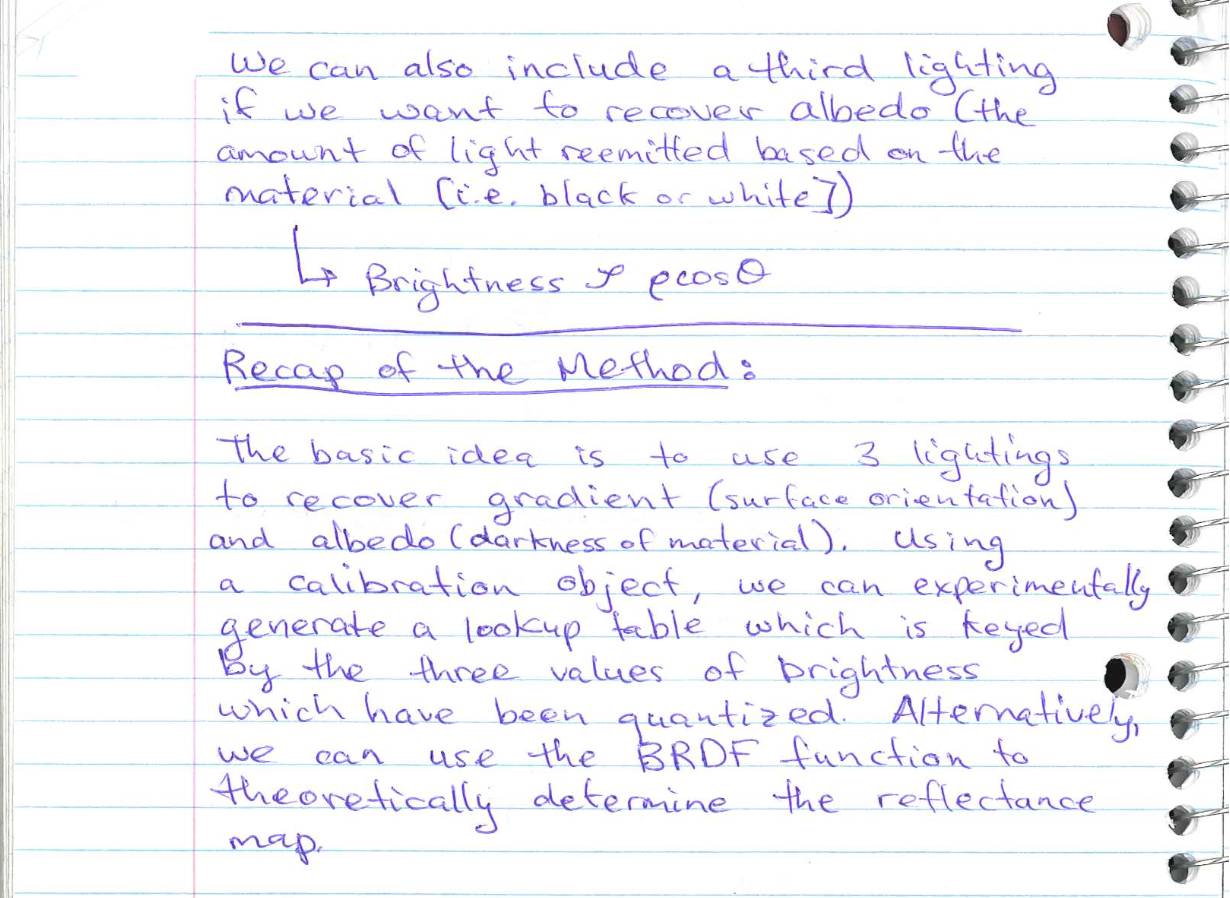 We can also include a third lighting
if we want to recover albedo (the
amount of light reemitted based on the
material [i.e. black or white])
↳ Brightness ∝ ρcosθ
Recap of the Method:
The basic idea is to use 3 lightings
to recover gradient (surface orientation)
and albedo (darkness of material). Using
a calibration object, we can experimentally
generate a lookup table which is keyed
by the three values of brightness
which have been quantized. Alternatively,
we can use the BRDF function to
theoretically determine the reflectance
map.